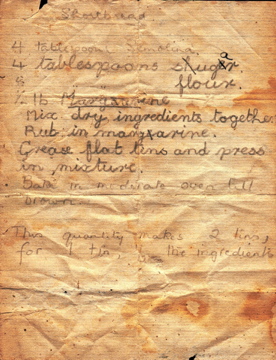 Shortbread
4 tablespoons Semolina.
4 tablespoons sugar
flour.
½ lb Margarine
Mix dry ingredients together
Rub in margarine.
Grease flat tins and press
in mixture.
Bake in moderate oven till
brown.
This quantity makes 2 tins,
for 1 tin, the ingredients